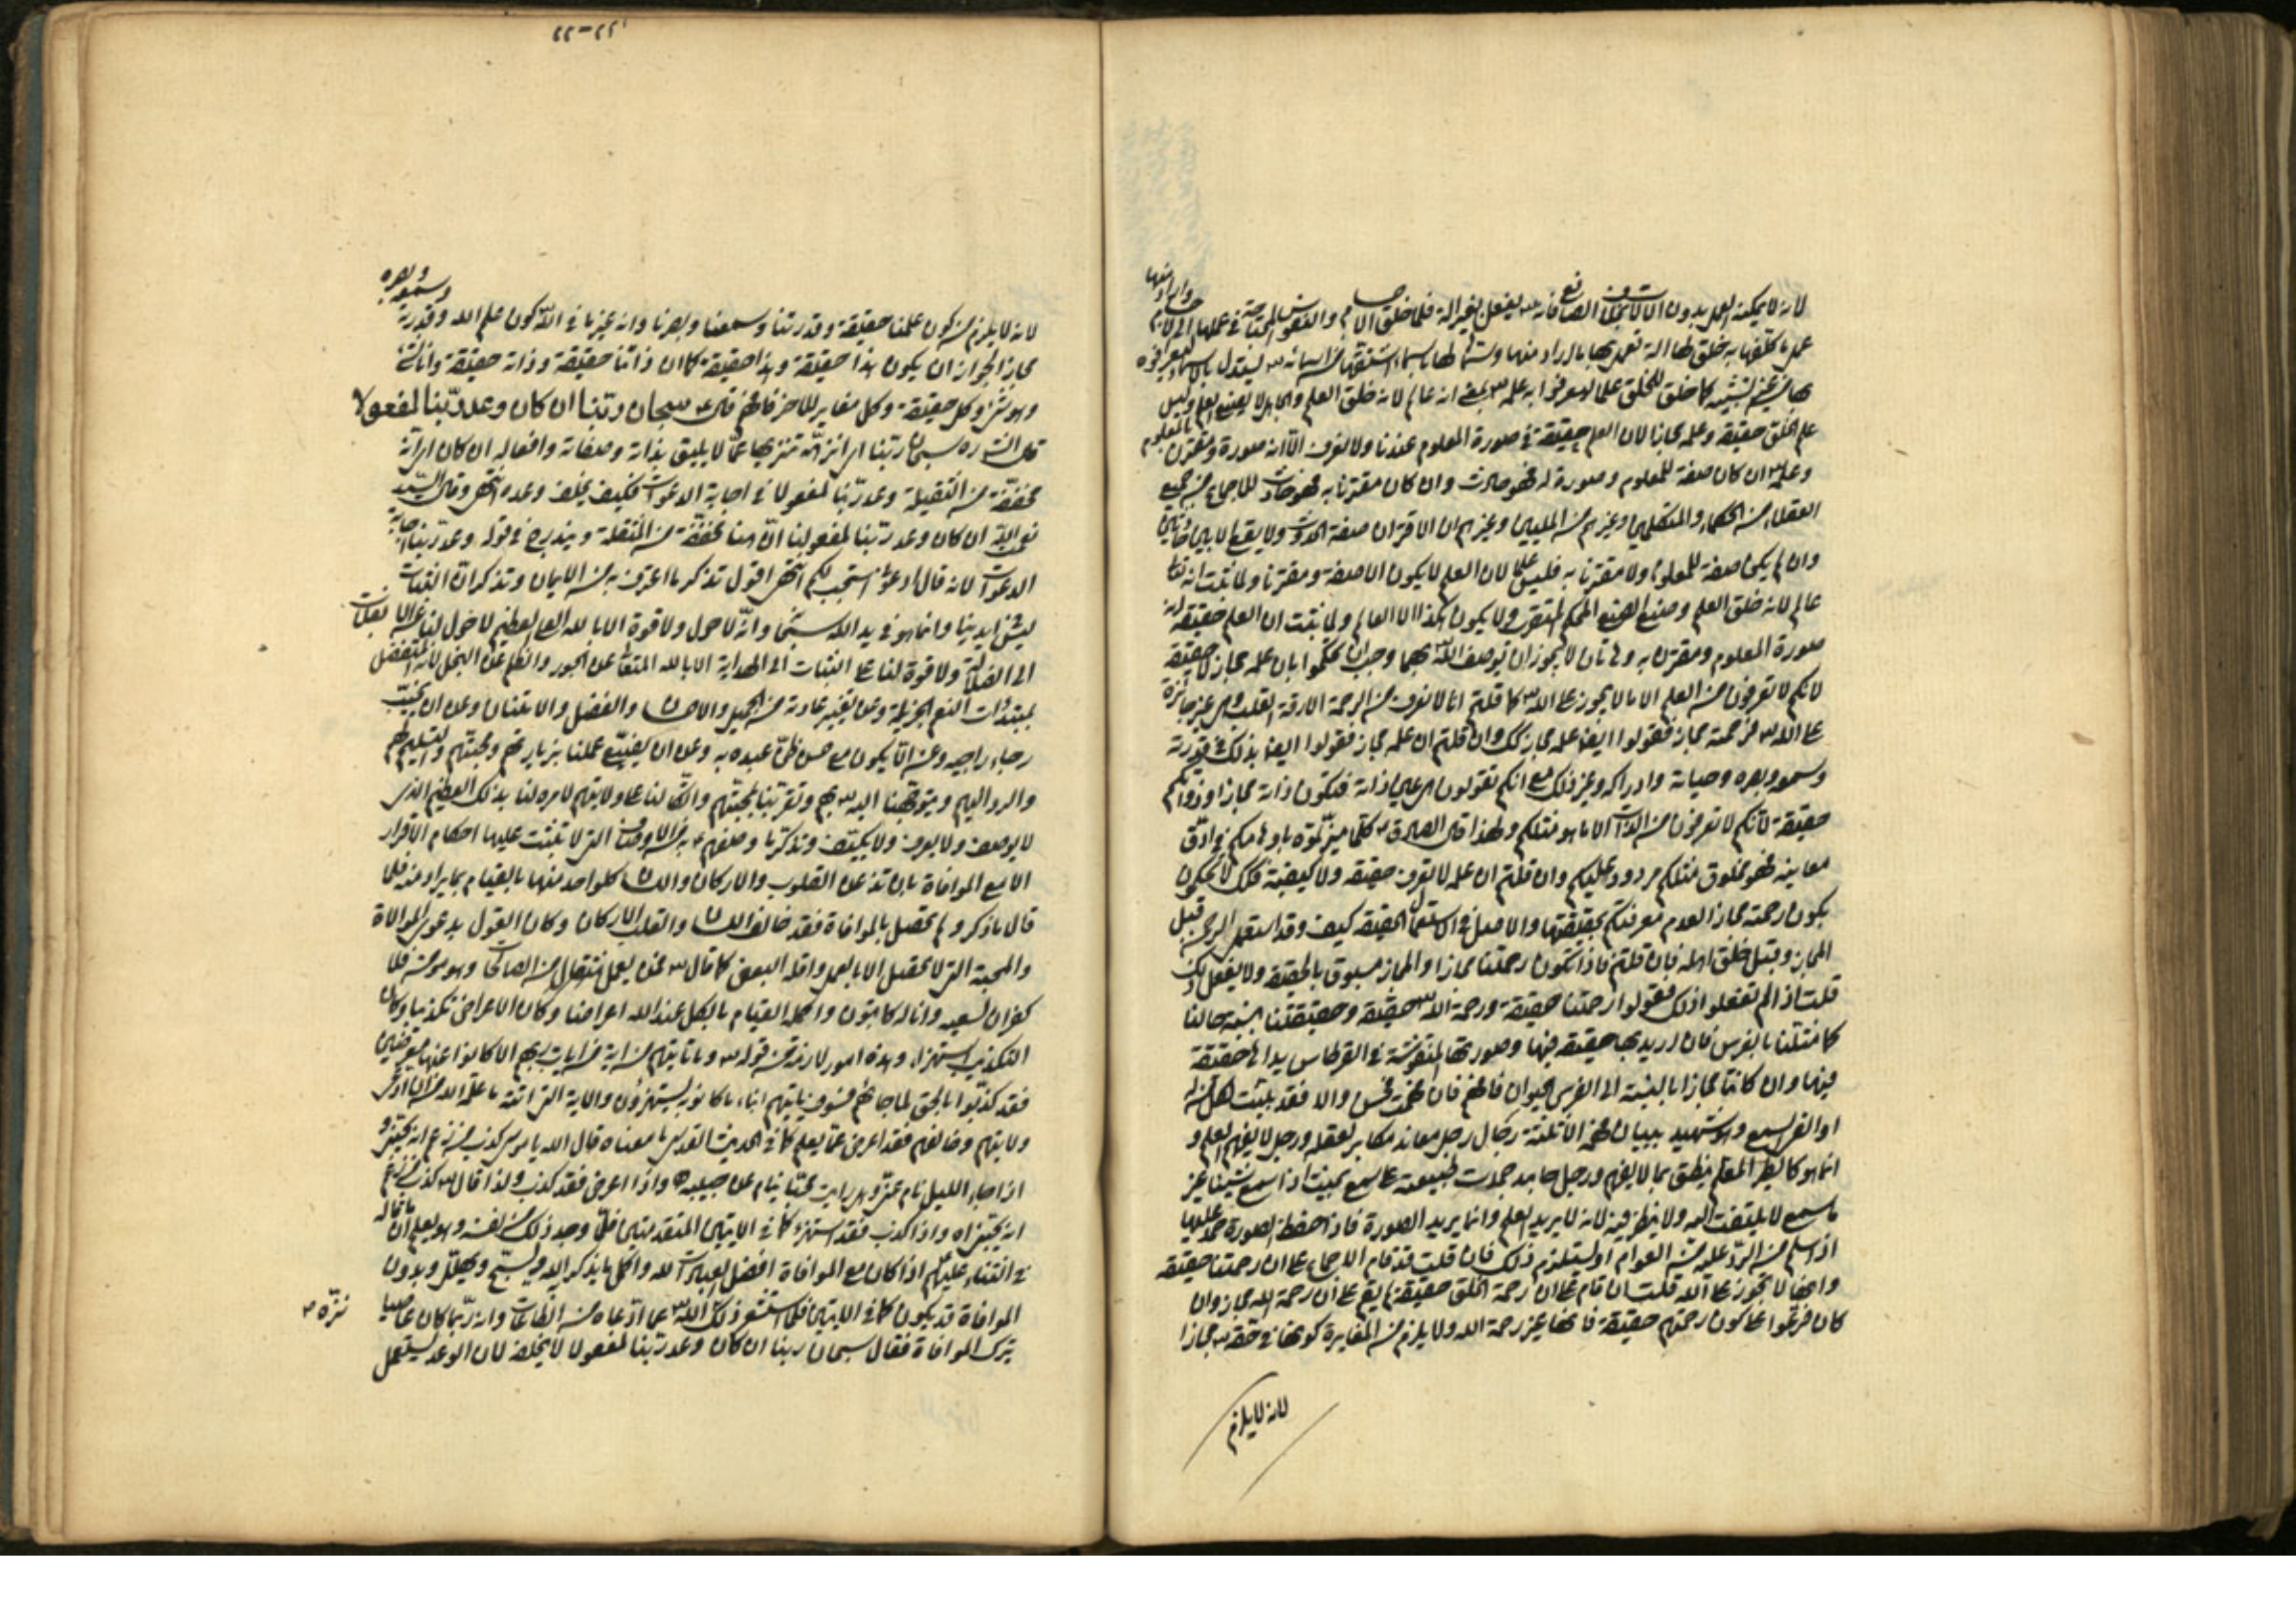 لانه لا يمكنه العمل بدون الالات بخلاف الصانع فانه يفعل بغير الة فلما خلق الاجسام والنفوس المحتاجة في عملها الى الالات
عمل ما كلفها به خلق لها الة تعمل بها ما اراد منها
بها من غير تشبيه كما خلق للخلق علما ليعرفوا به علمه بمعنى انه عالم لانه خلق العلم والجاهل لا يصنع العلم وليس
علم الخلق حقيقة وعلمه مجازا لان العلم حقيقة في صورة المعلوم عندنا ولا نعرف الا انه صورة ومقترن بالمعلوم
وعلمه ان كان صفة للمعلوم وصورة له فهو حادث وان كان مقترنا به فهو حادث للاجماع من جميع
العقلاء من الحكماء والمتكلمين وغيرهم من المليين وغيرهم ان الاقتران صفة الحدوث ولا يقع الا بين حادثين
وان لم يكن صفة للمعلوم ولا مقترنا به فليس علما لان العلم لا يكون الا صفة ومقترنا ولما ثبت انه تعالى
عالم لانه خلق العلم وصنع الصنع المحكم المتقن ولا يكون هكذا الا العالم ولما ثبت ان العلم حقيقة انه
صورة المعلوم ومقترن به وهاتان لا يجوز ان يوصف الله بهما وجب ان تحكموا بان علمه مجاز لا حقيقة
لانكم لا تعرفون من العلم الا ما لا يجوز على الله كما قلتم انا لا نعرف من الرحمة الا رقة القلب وهي غير جائزة
على الله فرحمته مجاز فقولوا ايضا علمه مجاز كذلك وان قلتم ان علمه مجاز فقولوا ايضا بذلك في قدرته
وسمعه وبصره وحياته وادراكه وغير ذلك مع انكم تقولون هي عين ذاته فتكون ذاته مجازا وذواتكم
حقيقة لانكم لا تعرفون من الذات الا ما هو مثلكم ولهذا قال الصادق كلما ميزتموه باوهامكم في ادق
معانيه فهو مخلوق مثلكم مردود عليكم وان قلتم ان علمه لا تعرف حقيقته ولا كيفيته فلم لا تحكمون
بكون رحمته مجازا لعدم معرفتكم بحقيقتها والاصل في الاستعمال الحقيقة كيف وقد استعمل الرحمن قبل
المجاز وقبل خلق اهله فان قلتم فاذا تكون رحمتنا مجازا والمجاز مسبوق بالحقيقة ولا يفعل ذلك
قلت اذا لم تفعلوا ذلك فقولوا رحمتنا حقيقة ورحمة الله حقيقة وحقيقتنا بنسبة حالنا
كما مثلنا بالفرس فان اريد بها حقيقة فيها وصورتها المنقوشة في القرطاس يراد بها حقيقة
فيها وان كانتا مجازا بالنسبة الى الفرس الحيوان فافهم فان فهمت فحسن والا فقد بليت
او القى السمع وهو شهيد ببيان فهم الا ثلثة رجال رجل معاند مكابر لعقله ورجل لا يفهم العلم و
انما هو كالطير المعلم ينطق بما لا يفهم ورجل جامد جمدت طبيعته على سمع بحيث اذا سمع شيئا غير
ما سمع لا يلتفت اليه ولا ينظر فيه لانه لا يريد العلم وانما يريد الصورة فاذا حفظ الصورة حمد عليها
اذا سلم من الرد عليه من العوام او يستلزم ذلك فان قلت قد قام الاجماع على ان رحمتنا حقيقة
وانها لا تجوز على الله قلت ان قام على ان رحمة الخلق حقيقة لم يقم على ان رحمة الله مجاز وان
كان فرعوا على كون رحمتهم حقيقة فانها غير رحمة الله ولا يلزم من المغايرة كونها في حقه مجازا
لانه لا يلزم
٢٢-٢٢
لانه لا يلزم من كون علمنا حقيقة وقدرتنا وسمعنا وبصرنا وانه غير ما في الله كون علم الله وقدرته وسمعه وبصره
مجازا لجواز ان يكون هذا حقيقة وهذا حقيقة كما ان ذاتنا حقيقة وذاته حقيقة وانا شيء
وهو شيء وكل حقيقة وكل مغاير للاخر فافهم قال سبحان ربنا ان كان وعد ربنا لمفعولا
قال الشارح سبحان ربنا اي انزهه تنزيها عما لا يليق بذاته وصفاته وافعاله ان كان اي انه
مخففة من الثقيلة وعد ربنا لمفعولا في اجابة الدعوات فكيف يخلف وعده انتهى وقال السيد
نعمة الله ان كان وعد ربنا لمفعولا ان هنا مخففة من المثقلة ويندرج في قوله وعد ربنا اجابة
الدعوات لانه قال ادعوني استجب لكم انتهى اقول تذكر ما اعترف به من الايمان وتذكر ان الثبات
ليس في ايدينا وانما هو في يد الله سبحانه وانه لا حول ولا قوة الا بالله العلي العظيم لا حول لنا
الى الضلالة ولا قوة لنا على الثبات الى الهداية الا بالله المتعالي عن الجور والظلم وعن البخل لانه المتفضل
بمبتدئات النعم الجزيلة وعن تغيير عادته من الجميل والاحسان والفضل والامتنان وعن ان يخيب
رجاء راجيه وعن ان لا يكون مع حسن ظن عبده به وعن ان يضيع عملنا بزيارتهم ومحبتهم والتسليم لهم
والرد اليهم وبتوجهنا اليه بهم وتقربنا بمحبتهم والاتكال لنا على ولايتهم لامره لنا بذلك العظيم الذي
لا يوصف ولا يعرف ولا يكيف وتذكرنا وصفهم به من الاوصاف التي لا تثبت عليها احكام الاقرار
الا مع الموافاة بان تذعن القلوب والاركان واللسان كل واحد منها بالقيام بما يراد منه فلما
قال ما ذكر ولم تحصل بالموافاة فقد خالف اللسان والقلب الاركان وكان القول بدعوى الموالاة
والمحبة التي لا تحصل الا بالعمل واقله البعض كما قال فمن يعمل مثقال من الصالحات وهو مؤمن فلا
كفران لسعيه وانا له كاتبون واكمله القيام بالكل عند الله اعراضا وكان الاعراض تكذيبا وكان
التكذيب استهزاء وهذه امور لازمة من قوله وما تاتيهم من اية من ايات ربهم الا كانوا عنها معرضين
فقد كذبوا بالحق لما جاءهم فسوف ياتيهم انباء ما كانوا به يستهزؤن والاية التي اتته ما علمه الله من
ولايتهم وخالفهم فقد اعرض عما يعلم كما في الحديث القدسي ما معناه قال الله يا موسى كذب من زعم انه يحبني و
اذا جاء الليل نام عني وهل رايت محبا ينام عن حبيبه واذا اعرض فقد كذب ولذا قال كذب من زعم
انه يحبني اه واذا كذب فقد استهزء كما في الايتين المتقدمتين فلما وجد ذلك من نفسه وهو يعلم ان ما قاله
في الثناء عليهم اذا كان مع الموافاة افضل لعبادات الله واكمل ما يذكر الله ويسبح ويهلل وبدون
الموافاة قد يكون كما في الايتين فلما استشعر ذلك نزه الله عما ادعاه من الطاعات وانه ربما كان عاصيا
بترك الموافاة فقال سبحان ربنا ان كان وعد ربنا لمفعولا لا يخلف لان الوعد يستعمل